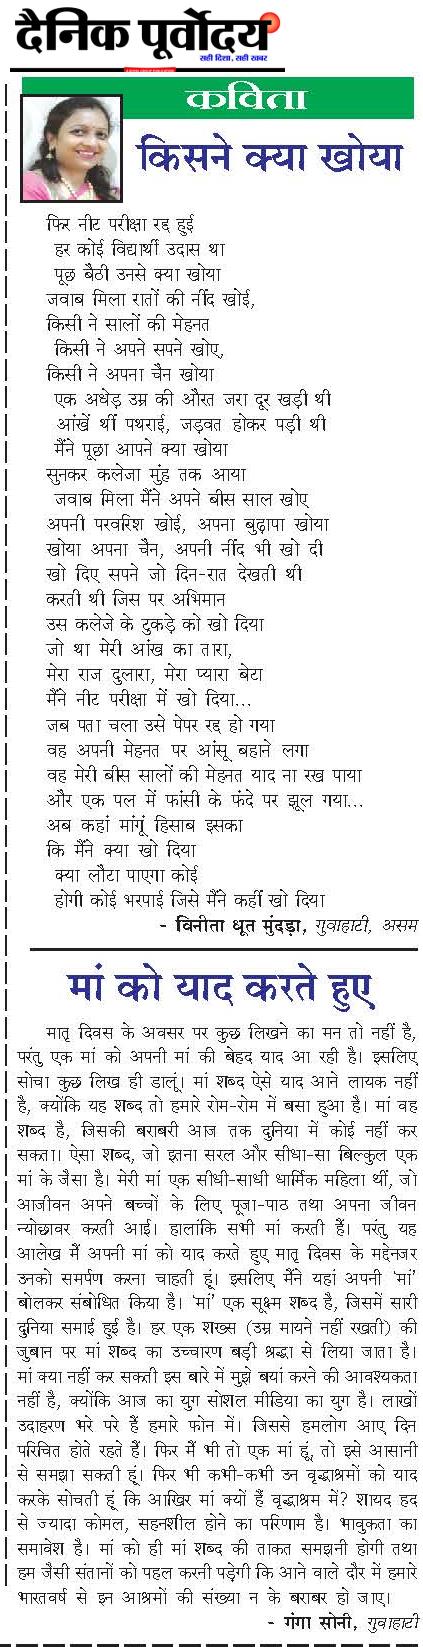 दैनिक पूर्वोदय
सही दिशा, सही खबर
कविता
किसने क्या खोया
फिर नीट परीक्षा रद्द हुई
हर कोई विद्यार्थी उदास था
पूछ बैठी उनसे क्या खोया
जवाब मिला रातों की नींद खोई,
किसी ने सालों की मेहनत
किसी ने अपने सपने खोए,
किसी ने अपना चैन खोया
एक अधेड़ उम्र की औरत जरा दूर खड़ी थी
आंखें थीं पथराई, जड़वत होकर पड़ी थी
मैंने पूछा आपने क्या खोया
सुनकर कलेजा मुंह तक आया
जवाब मिला मैंने अपने बीस साल खोए
अपनी परवरिश खोई, अपना बुढ़ापा खोया
खोया अपना चैन, अपनी नींद भी खो दी
खो दिए सपने जो दिन-रात देखती थी
करती थी जिस पर अभिमान
उस कलेजे के टुकड़े को खो दिया
जो था मेरी आंख का तारा,
मेरा राज दुलारा, मेरा प्यारा बेटा
मैंने नीट परीक्षा में खो दिया...
जब पता चला उसे पेपर रद्द हो गया
वह अपनी मेहनत पर आंसू बहाने लगा
वह मेरी बीस सालों की मेहनत याद ना रख पाया
और एक पल में फांसी के फंदे पर झूल गया...
अब कहां मांगूं हिसाब इसका
कि मैंने क्या खो दिया
क्या लौटा पाएगा कोई
होगी कोई भरपाई जिसे मैंने कहीं खो दिया
- विनीता धूत मुंदड़ा, गुवाहाटी, असम
मां को याद करते हुए
मातृ दिवस के अवसर पर कुछ लिखने का मन तो नहीं है,
परंतु एक मां को अपनी मां की बेहद याद आ रही है। इसलिए
सोचा कुछ लिख ही डालूं। मां शब्द ऐसे याद आने लायक नहीं
है, क्योंकि यह शब्द तो हमारे रोम-रोम में बसा हुआ है। मां वह
शब्द है, जिसकी बराबरी आज तक दुनिया में कोई नहीं कर
सकता। ऐसा शब्द, जो इतना सरल और सीधा-सा बिल्कुल एक
मां के जैसा है। मेरी मां एक सीधी-साधी धार्मिक महिला थीं, जो
आजीवन अपने बच्चों के लिए पूजा-पाठ तथा अपना जीवन
न्योछावर करती आई। हालांकि सभी मां करती हैं। परंतु यह
आलेख मैं अपनी मां को याद करते हुए मातृ दिवस के मद्देनजर
उनको समर्पण करना चाहती हूं। इसलिए मैंने यहां अपनी 'मां'
बोलकर संबोधित किया है। 'मां' एक सूक्ष्म शब्द है, जिसमें सारी
दुनिया समाई हुई है। हर एक शख्स (उम्र मायने नहीं रखती) की
जुबान पर मां शब्द का उच्चारण बड़ी श्रद्धा से लिया जाता है।
मां क्या नहीं कर सकती इस बारे में मुझे बयां करने की आवश्यकता
नहीं है, क्योंकि आज का युग सोशल मीडिया का युग है। लाखों
उदाहरण भरे परे हैं हमारे फोन में। जिससे हमलोग आए दिन
परिचित होते रहते हैं। फिर मैं भी तो एक मां हूं, तो इसे आसानी
से समझा सकती हूं। फिर भी कभी-कभी उन वृद्धाश्रमों को याद
करके सोचती हूं कि आखिर मां क्यों हैं वृद्धाश्रम में? शायद हद
से ज्यादा कोमल, सहनशील होने का परिणाम है। भावुकता का
समावेश है। मां को ही मां शब्द की ताकत समझनी होगी तथा
हम जैसी संतानों को पहल करनी पड़ेगी कि आने वाले दौर में हमारे
भारतवर्ष से इन आश्रमों की संख्या न के बराबर हो जाए।
- गंगा सोनी, गुवाहाटी